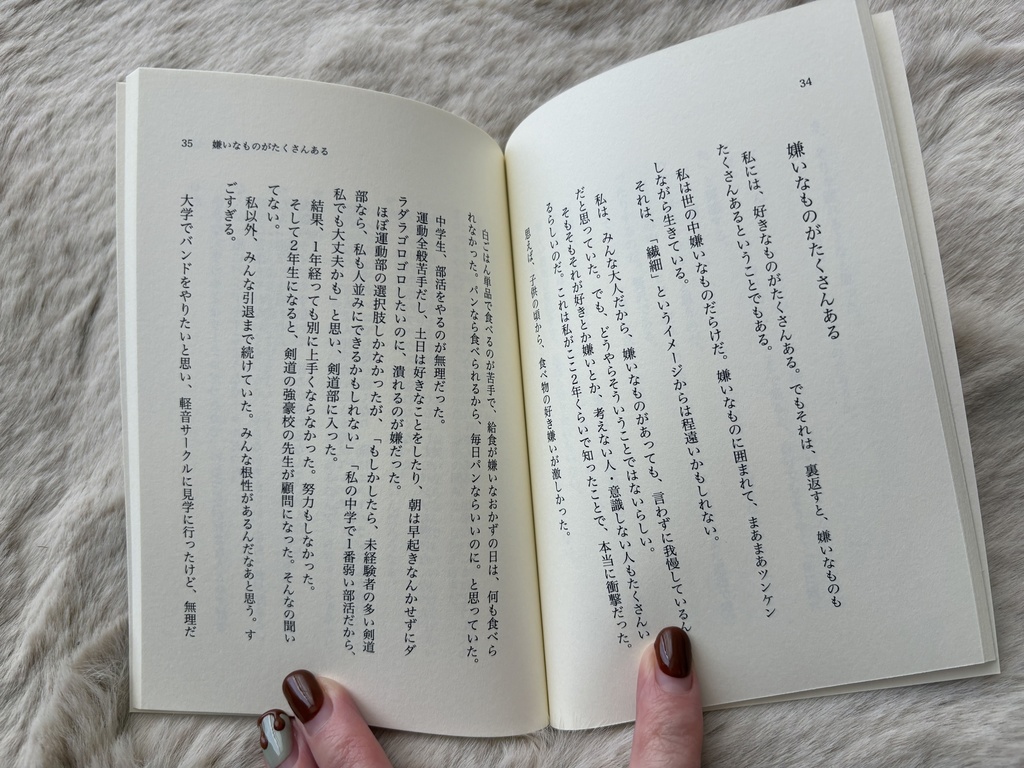 34
嫌いなものがたくさんある
私には、好きなものがたくさんある。でもそれは、裏返すと、嫌いなものも
たくさんあるということでもある。
私は世の中嫌いなものだらけだ。嫌いなものに囲まれて、まあまあツンケン
しながら生きている。
それは、「繊細」というイメージからは程遠いかもしれない。
私は、みんな大人だから、嫌いなものがあっても、言わずに我慢しているん
だと思っていた。でも、どうやらそういうことではないらしい。
そもそもそれが好きとか嫌いとか、考えない人・意識しない人もたくさんい
るらしいのだ。これは私がここ2年くらいで知ったことで、本当に衝撃だった。
思えば、子供の頃から、食べ物の好き嫌いが激しかった。
白ごはん単品で食べるのが苦手で、給食が嫌いなおかずの日は、何も食べら
れなかった。パンなら食べられるから、毎日パンならいいのに。と思っていた。
中学生、部活をやるのが無理だった。
運動全般苦手だし、土日は好きなことをしたり、朝は早起きなんかせずにダ
ラダラゴロゴロしたいのに、潰れるのが嫌だった。
ほぼ運動部の選択肢しかなかったが、「もしかしたら、未経験者の多い剣道
部なら、私も人並みにできるかもしれない」「私の中学で1番弱い部活だから、
私でも大丈夫かも」と思い、剣道部に入った。
結果、1年経っても別に上手くならなかった。努力もしなかった。
そして2年生になると、剣道の強豪校の先生が顧問になった。そんなの聞い
てない。
私以外、みんな引退まで続けていた。みんな根性があるんだなあと思う。す
ごすぎる。
大学でバンドをやりたいと思い、軽音サークルに見学に行ったけど、無理だ
35 嫌いなものがたくさんある